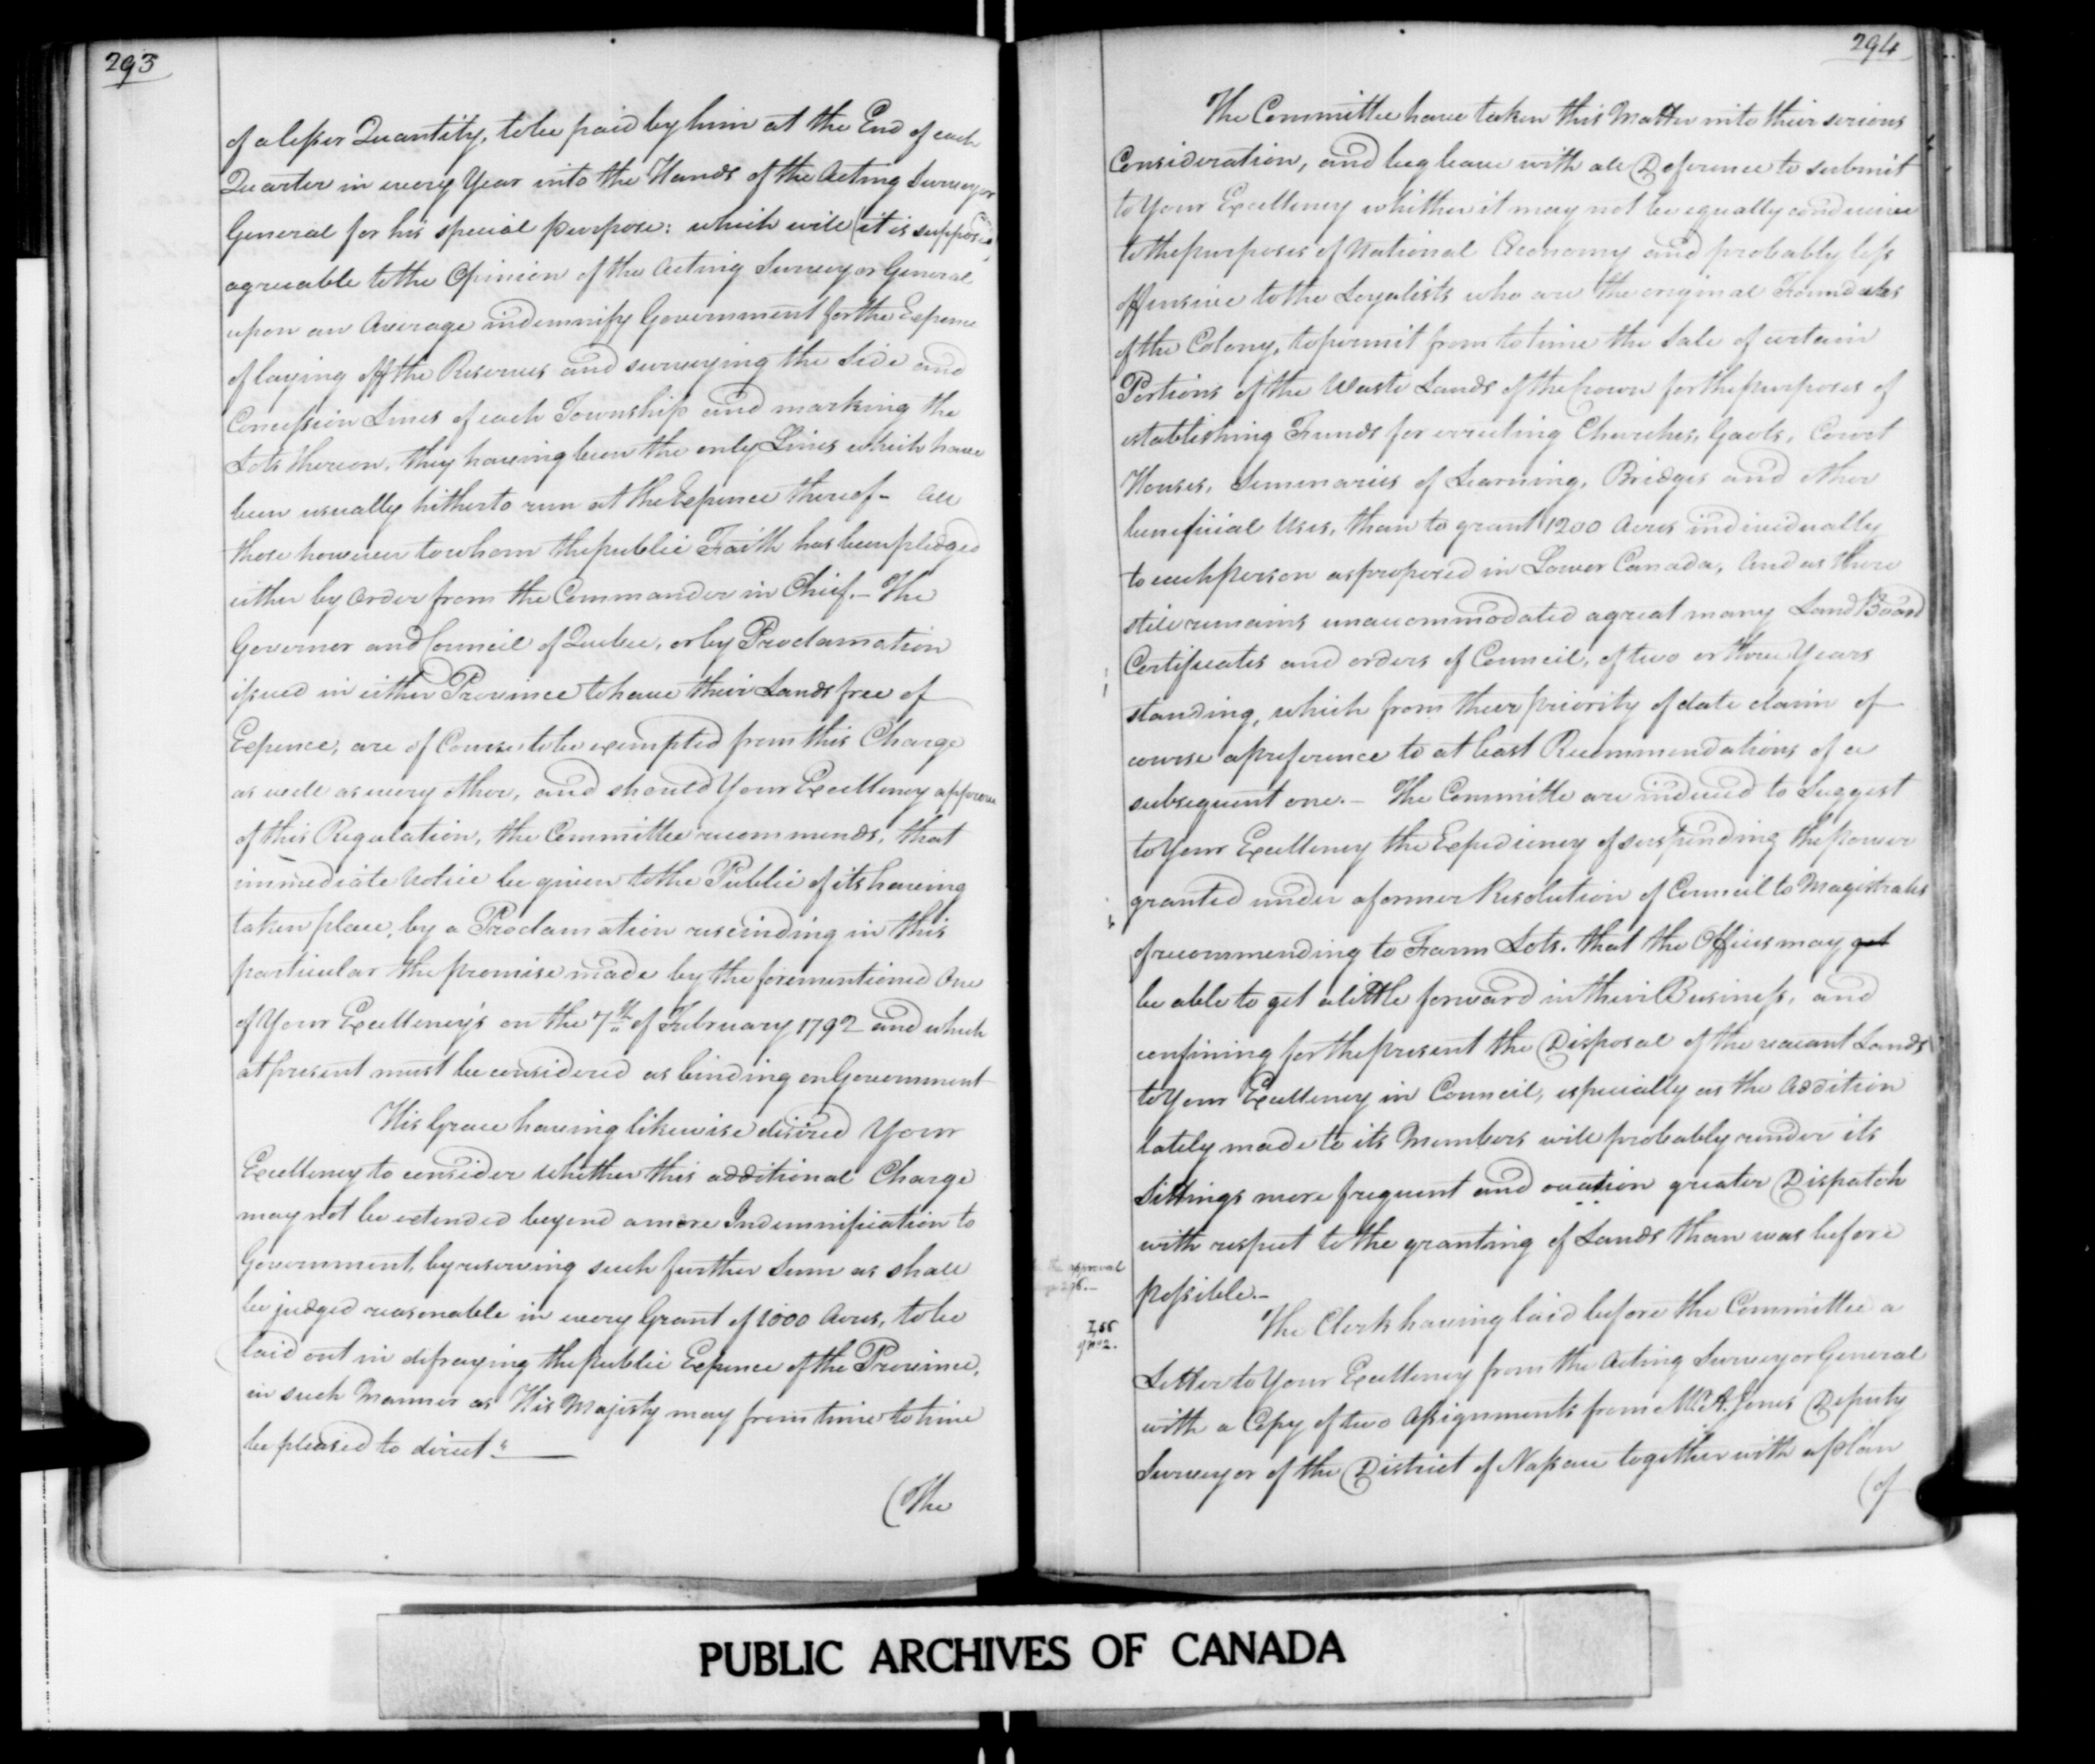 293
of a lesser Quantity, to be paid by him at the End of each
Quarter in every Year into the Hands of the Acting Surveyor
General for his special purpose: which will (it is supposed)
agreeable to the Opinion of the Acting Surveyor General
upon an Average indemnify Government for the Expence
of laying off the Reserves and surveying the Side and
Concession Lines of each Township and marking the
Lots thereon, they having been the only Lines which have
been usually hitherto run at the Expence thereof - All
those however to whom the public Faith has been pledged
either by Order from the Commander in Chief. - The
Governor and Council of Quebec, or by Proclamation
issued in either Province to have their Lands free of
Expence, are of Course to be exempted from this Charge
as well as every other, and should Your Excellency approve
of this Regulation, the Committee recommends, that
immediate Notice be given to the Public of its having
taken place, by a Proclamation rescinding in this
particular the promise made by the forementioned One
of Your Excellency's on the 7th of February 1792 and which
at present must be considered as binding on Government
His Grace having likewise desired Your
Excellency to consider whether this additional Charge
may not be extended beyond a mere Indemnification to
Government, by reserving such further Sum as shall
be judged reasonable in every Grant of 1000 Acres, to be
laid out in defraying the public Expence of the Province,
in such Manner as His Majesty may from time to time
be pleased to direct."
(The
294
The Committee have taken this Matter into their serious
Consideration, and beg leave with all Deference to submit
to Your Excellency whither it may not be equally conducive
to the purposes of National Œconomy and probably less
offensive to the Loyalists who are the original Founders
of the Colony, to permit from to time the Sale of certain
Portions of the Waste Lands of the Crown for the purposes of
establishing Funds for erecting Churches, Gaols, Court
Houses, Seminaries of Learning, Bridges and other
beneficial Uses, than to grant 1200 Acres individually
to each person as proposed in Lower Canada, And as there
still remains unaccommodated a great many Land Board
Certificates and orders of Council, of two or three Years
standing, which from their priority of date claim of
course a preference to at least Recommendations of a
subsequent one. - The Committee are induced to Suggest
to Your Excellency the Expediency of suspending the power
granted under a former Resolution of Council to Magistrates
of recommending to Farm Lots. that the Offices may get
be able to get a little forward in their Business, and
confining for the present the Disposal of the vacant Lands
to Your Excellency in Council, especially as the Addition
lately made to its Members will probably render its
Sittings more frequent and occasion greater Dispatch
with respect to the granting of Lands than was before
possible. -
The Clerk having laid before the Committee a
Letter to Your Excellency from the Acting Surveyor General
with a Copy of two Assignments from Mr. A. Jones Deputy
Surveyor of the District of Nassau together with a plan
(of
PUBLIC ARCHIVES OF CANADA